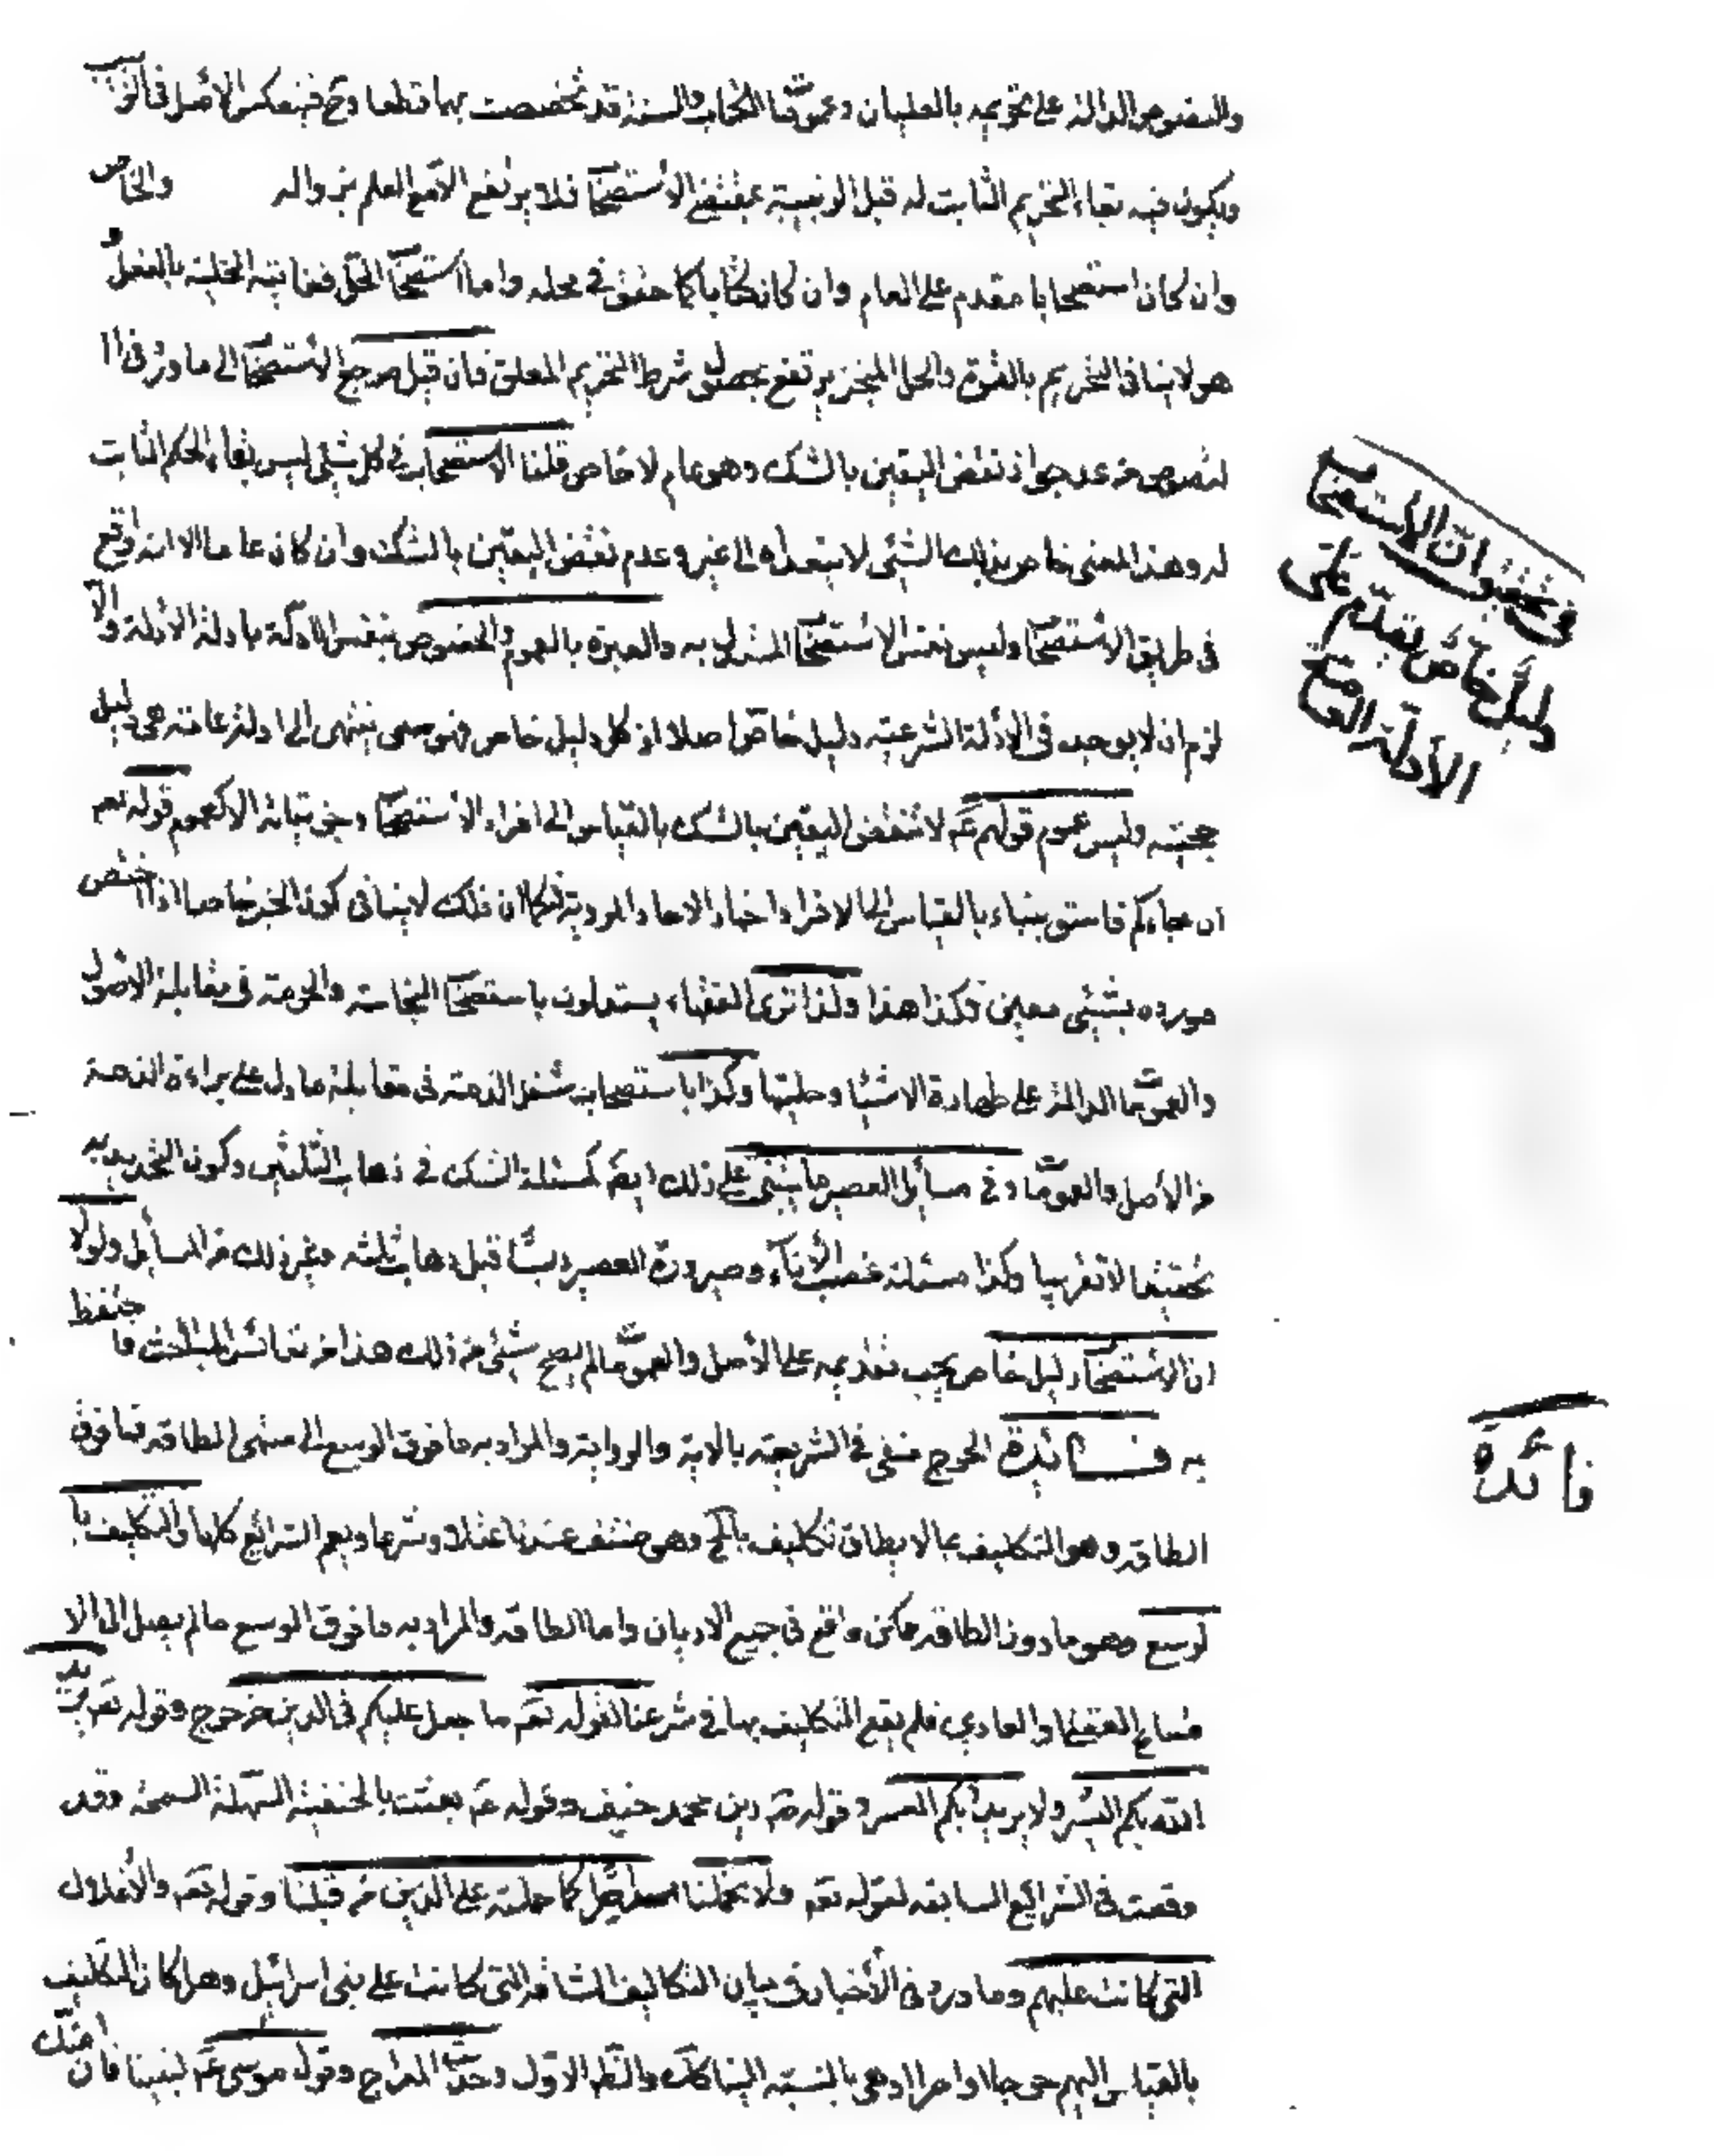 والنصوص الدالة على تحريمه بالغليان وعموما الكتاب والسنة قد تخصصت بهما قطعا وح فينعكس الأصل في الزبيب
ويكون فيه بقاء التحريم الثابت له قبل الزبيبية بمقتضى الاستصحا فلا يرتفع الا مع العلم بزواله والخاص
وان كان استصحابا مقدم على العام وان كان كتابا كما حقق في محله واما استصحا الحل فغايته الحلية بالفعل و
هو لا ينافي التحريم بالقوة والحل المنجز يرتفع بحصول شرط التحريم المعلق فان قيل مرجع الاستصحا الى ما ورد في ا
لنصوص من عدم جواز نقض اليقين بالشك وهو عام لا خاص قلنا الاستصحاب في كل شيئ ليس بقاء الحكم الثابت
له وهذا المعنى خاص بذلك الشيئ لا يتعداه الى غيره وعدم نقض اليقين بالشك وان كان عاما الا انه واقع
في طريق الاستصحا وليس نفس الاستصحا المستدل به والعبرة بالعموم والخصوص بنفس الادلة لا بادلة الادلة والا
لزم ان لا يوجد في الأدلة الشرعية دليل خاص اصلا اذ كل دليل خاص فهو ينتهى الى ادلة عامة هي دليل
حجيته وليس عموم قولهم عم لا تنقض اليقين بالشك بالقياس الى افراد الاستصحا وجزئياته الا كعموم قوله تعم
ان جاءكم فاسق بنباء بالقياس الى افراد اخبار الاحاد المروية فكما ان ذلك لا ينافي كون الخبر خاصا اذا اختص
مورده بشيئ معين فكذا هذا ولذا ترى الفقهاء يستدلون باستصحا النجاسة والحرمة في مقابلة الاصول
والعموما الدالة على طهارة الاشيا وحليتها وكذا باستصحاب شغل الذمة في مقابلة ما دل على براءة الذمة
من الأصل والعموما وفي مسائل العصير ما يبتنى على ذلك ايضا كمسئلة الشك في ذهاب الثلثين وكون التحديد به
تحقيقا لا تقريبا وكذا مسئلة خضب الأناء وصيرورة العصير دبسا قبل ذهاب ثلثه وغير ذلك من المسائل ولولا
ان الاستصحا دليل خاص يجب تقديمه على الأصل والعموما لم يصح شيئ من ذلك هذا من نفائس المباحث فاحتفظ
به فـائدة الحرج منفى في الشريعة بالاية والرواية والمراد به ما فوق الوسع الى منتهى الطاقة فما فوق
الطاقة وهو التكليف بما لا يطاق تكليف بالمح وهو منتف عندنا عقلا وشرعا ويعم الشرائع كلها والتكليف با
لوسع وهو ما دون الطاقة ممكن واقع في جميع الاديان واما الطاقة والمراد به ما فوق الوسع ما لم يصل الى الا
متناع العقلي او العادي فلم يقع التكليف بها في شرعنا لقوله تعم ما جعل عليكم في الدين من حرج وقوله تعم يريد
الله بكم اليسر ولا يريد بكم العسر وقوله ص دين محمد حنيف وقوله عم بعثت بالحنفية السهلة السمحة وقد
وقعت في الشرائع السابقه لقوله تعم ولا تحملنا اصرا كما حملته على الذين من قبلنا وقوله تعم والأغلال
التي كانت عليهم وما ورد في الأخبار في بيان التكاليف الشاقة التي كانت على بني اسرائيل وهل كان التكليف
بالقياس اليهم حرجا او اصرا او هي بالنسبة الينا كك والظ الاول وحديث المعراج وقول موسى عم لنبينا فان امتك
في تحقيق ان الاستصحاب
دليل خاص يقدم على
الأدلة العامة
فائدة